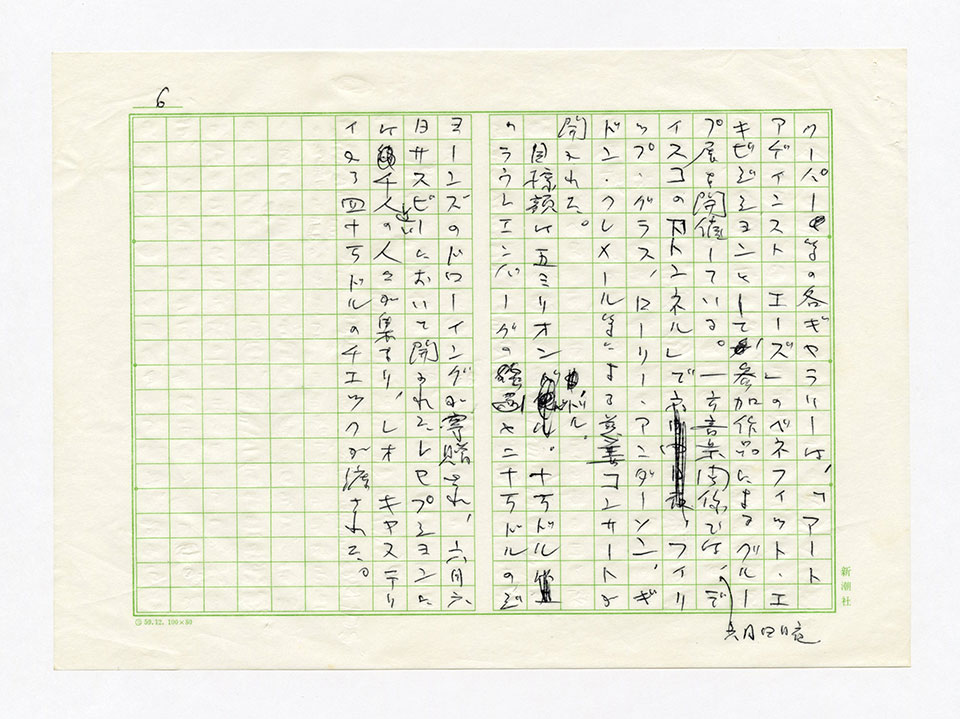 6
クーパー等の各ギャラリーは、「アート
アゲインスト エーズ」のベネフィット・エ
キビジションとして参加作品によるグルー
プ展を開催している。一方音楽関係では、デ
六月四日夜
ィスコの「トンネル」で、フィリ
ップ・グラス、ローリー・アンダーソン、ギ
ドン・クレメール等による慈善コンサートが
開かれた。
目標額は五ミリオンドル。十万ドル
のラウシェンバーグの や二十万ドルのジ
ョーンズのドローイングが寄贈され、六月六
日サスビーにおいて開かれたレセプションに
は千人近い人々が集まり、レオ キャステリ
イの三四十万ドルのチェックが渡された。
新潮社
59.12. 100×80